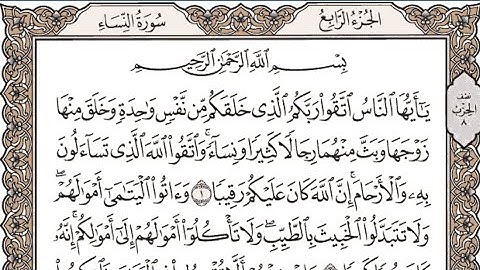 الجزء الرابع
سورة النساء
بسم الله الرحمن الرحيم
نصف
الحزب
٨
يَٰٓأَيُّهَا ٱلنَّاسُ ٱتَّقُوا۟ رَبَّكُمُ ٱلَّذِى خَلَقَكُم مِّن نَّفْسٍ وَٰحِدَةٍ وَخَلَقَ مِنْهَا
زَوْجَهَا وَبَثَّ مِنْهُمَا رِجَالًا كَثِيرًا وَنِسَآءً ۚ وَٱتَّقُوا۟ ٱللَّهَ ٱلَّذِى تَسَآءَلُونَ
بِهِۦ وَٱلْأَرْحَامَ ۚ إِنَّ ٱللَّهَ كَانَ عَلَيْكُمْ رَقِيبًا ١ وَءَاتُوا۟ ٱلْيَتَٰمَىٰٓ أَمْوَٰلَهُمْ ۖ
وَلَا تَتَبَدَّلُوا۟ ٱلْخَبِيثَ بِٱلطَّيِّبِ ۖ وَلَا تَأْكُلُوٓا۟ أَمْوَٰلَهُمْ إِلَىٰٓ أَمْوَٰلِكُمْ ۚ إِنَّهُۥ